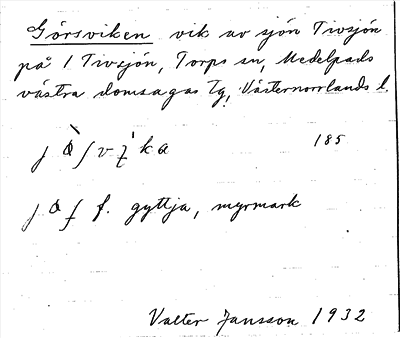 Görsviken vik av sjön Tivsjön
på / Tivsjön, Torps sn, Medelpads
västra domsagas Tg, Västernorrlands l.
185
f. gyttja, myrmark
Valter Jansson 1932